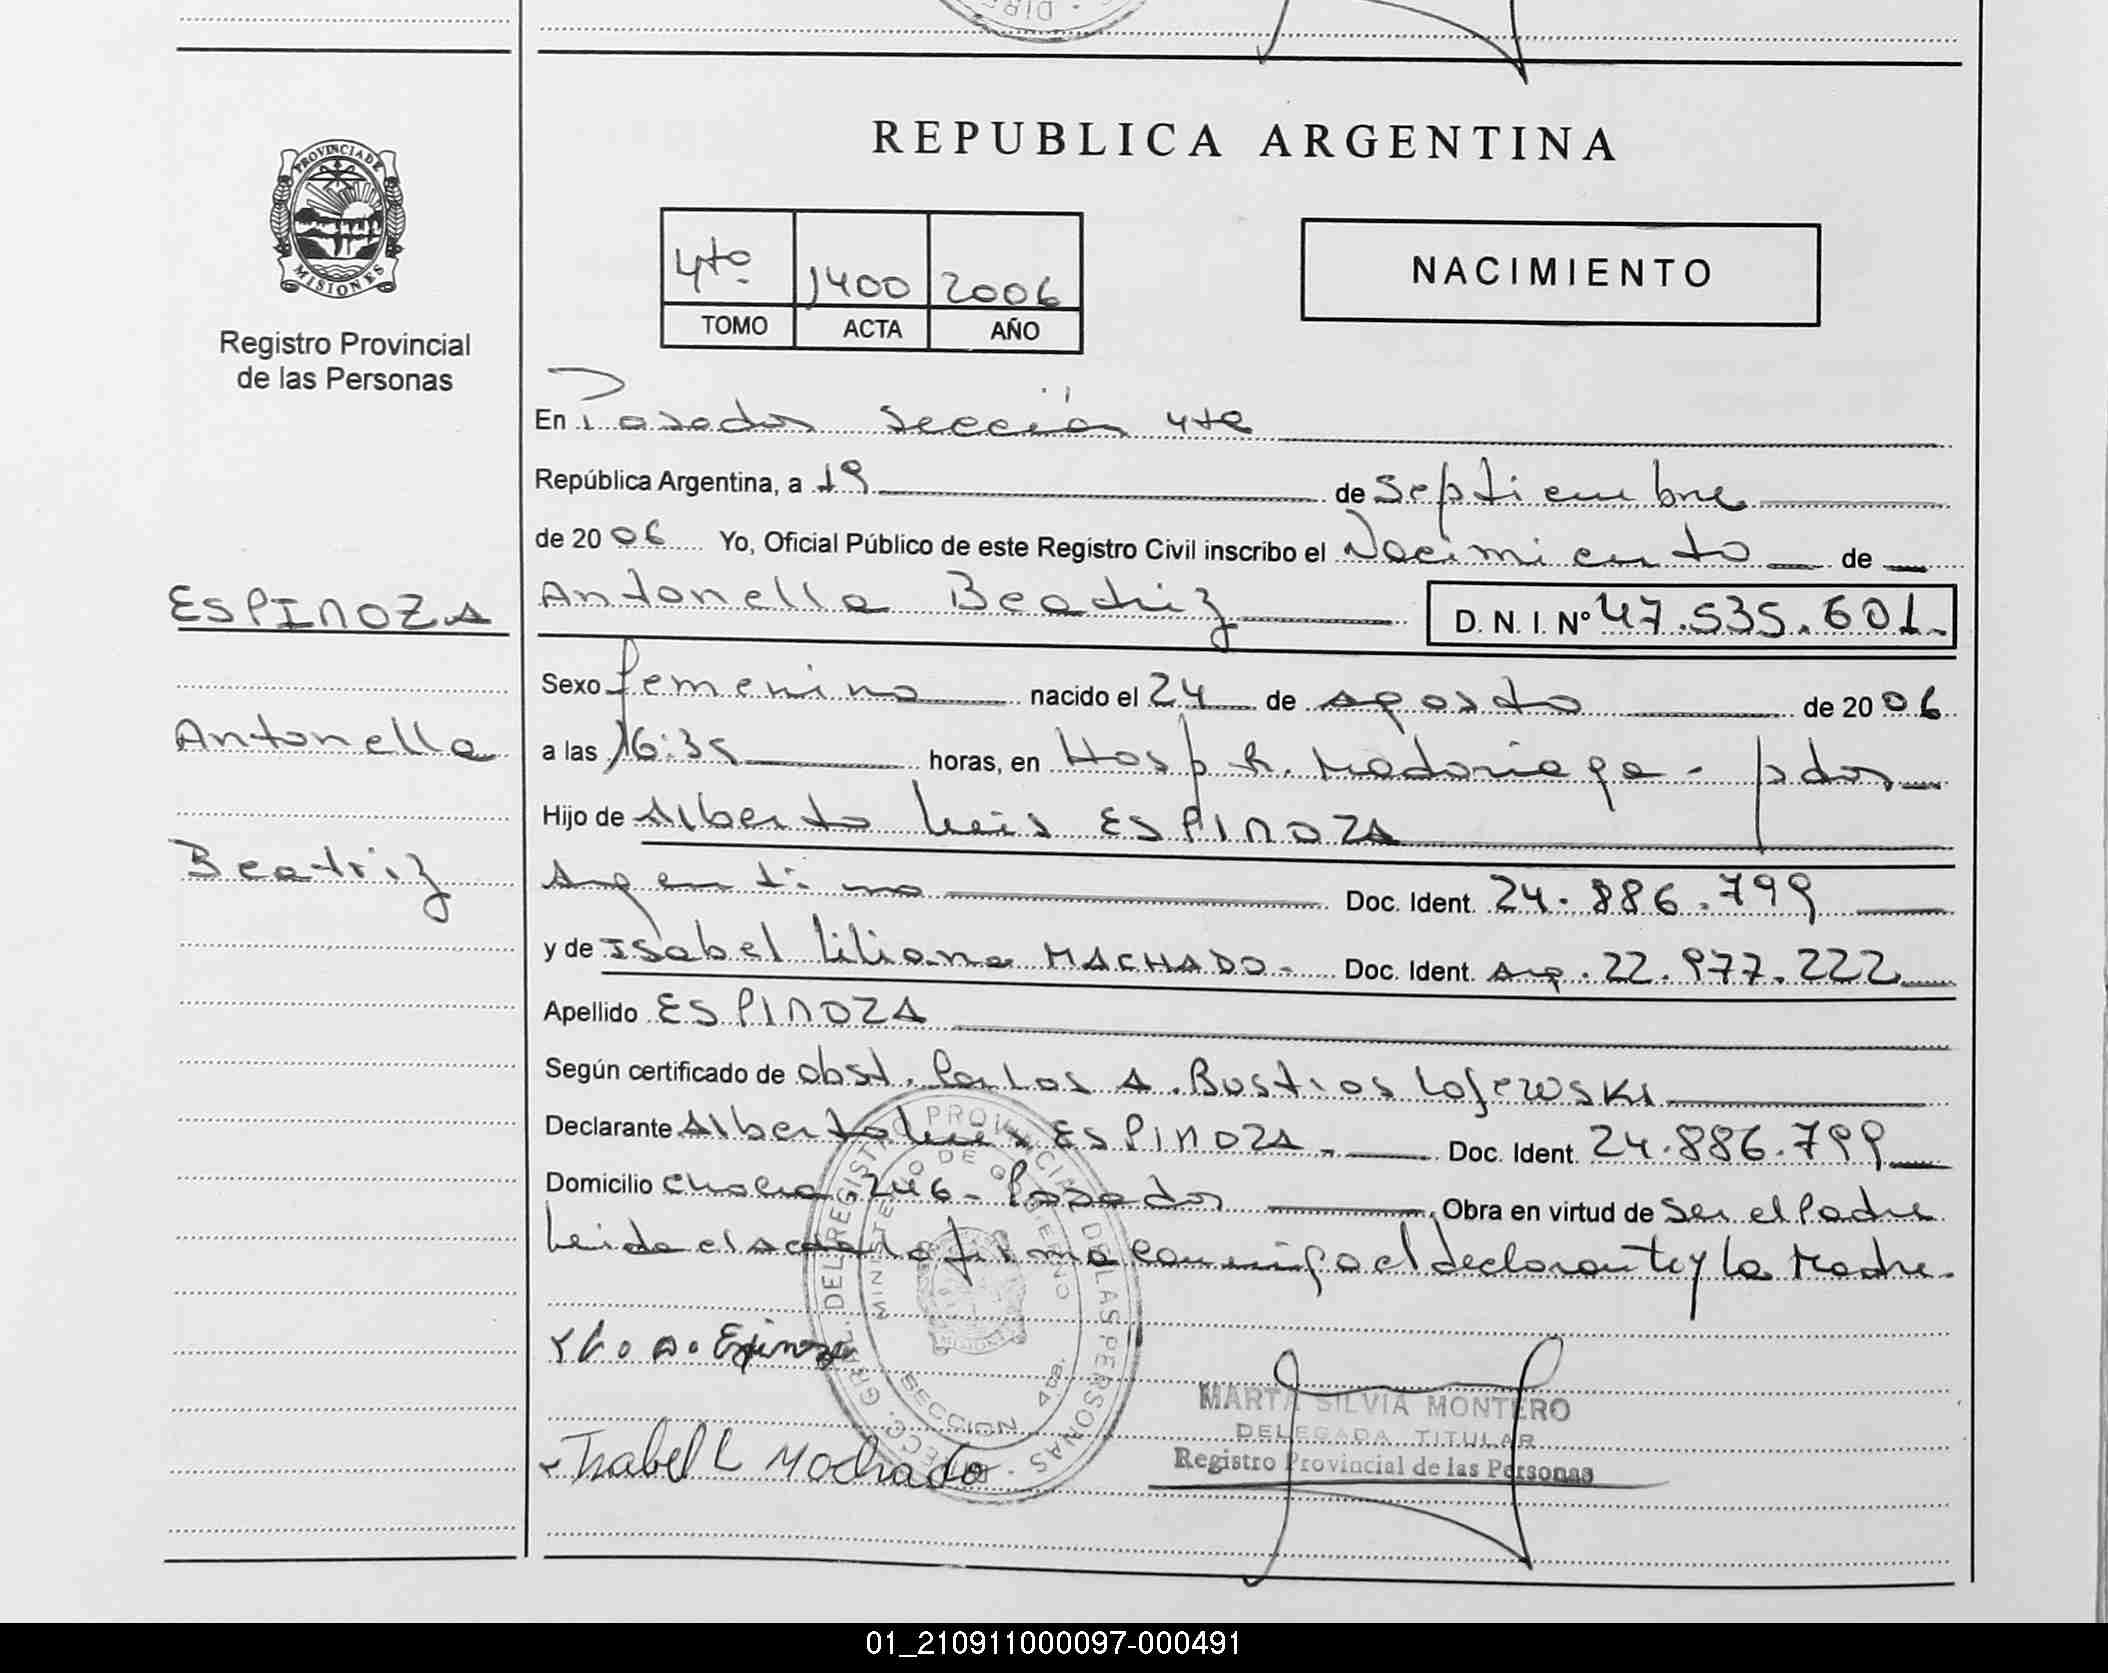 PROVINCIA DE
MISIONES
Registro Provincial
de las Personas
ESPINOZA
Antonella
Beatriz
REPUBLICA ARGENTINA
4to 1400 2006
TOMO ACTA AÑO
NACIMIENTO
En Posadas sección 4ta
República Argentina, a 19 de septiembre
de 2006 Yo, Oficial Público de este Registro Civil inscribo el Nacimiento de
Antonella Beatriz D. N. I. Nº 47.535.601.
Sexo femenino nacido el 24 de agosto de 2006
a las 16:35 horas, en Hosp R. Madariaga - pdas
Hijo de Alberto Luis ESPINOZA
Argentino Doc. Ident. 24.886.799
y de Isabel Liliana MACHADO.- Doc. Ident. Arg. 22.977.222
Apellido ESPINOZA
Según certificado de obst. Carlos A. Bustios Lojewski
Declarante Alberto Luis ESPINOZA.- Doc. Ident. 24.886.799
Domicilio chacra 246 - Posadas Obra en virtud de Ser el Padre
Leida el acta la firma conmigo el declarante y la Madre.
Espinoza
Isabel L Machado
DIREC. GRAL. DEL REGISTRO PROVINCIAL DE LAS PERSONAS
MINISTERIO DE GOBIERNO
MISIONES
SECCION 4ta.
MARTA SILVIA MONTERO
DELEGADA TITULAR
Registro Provincial de las Personas
01_210911000097-000491